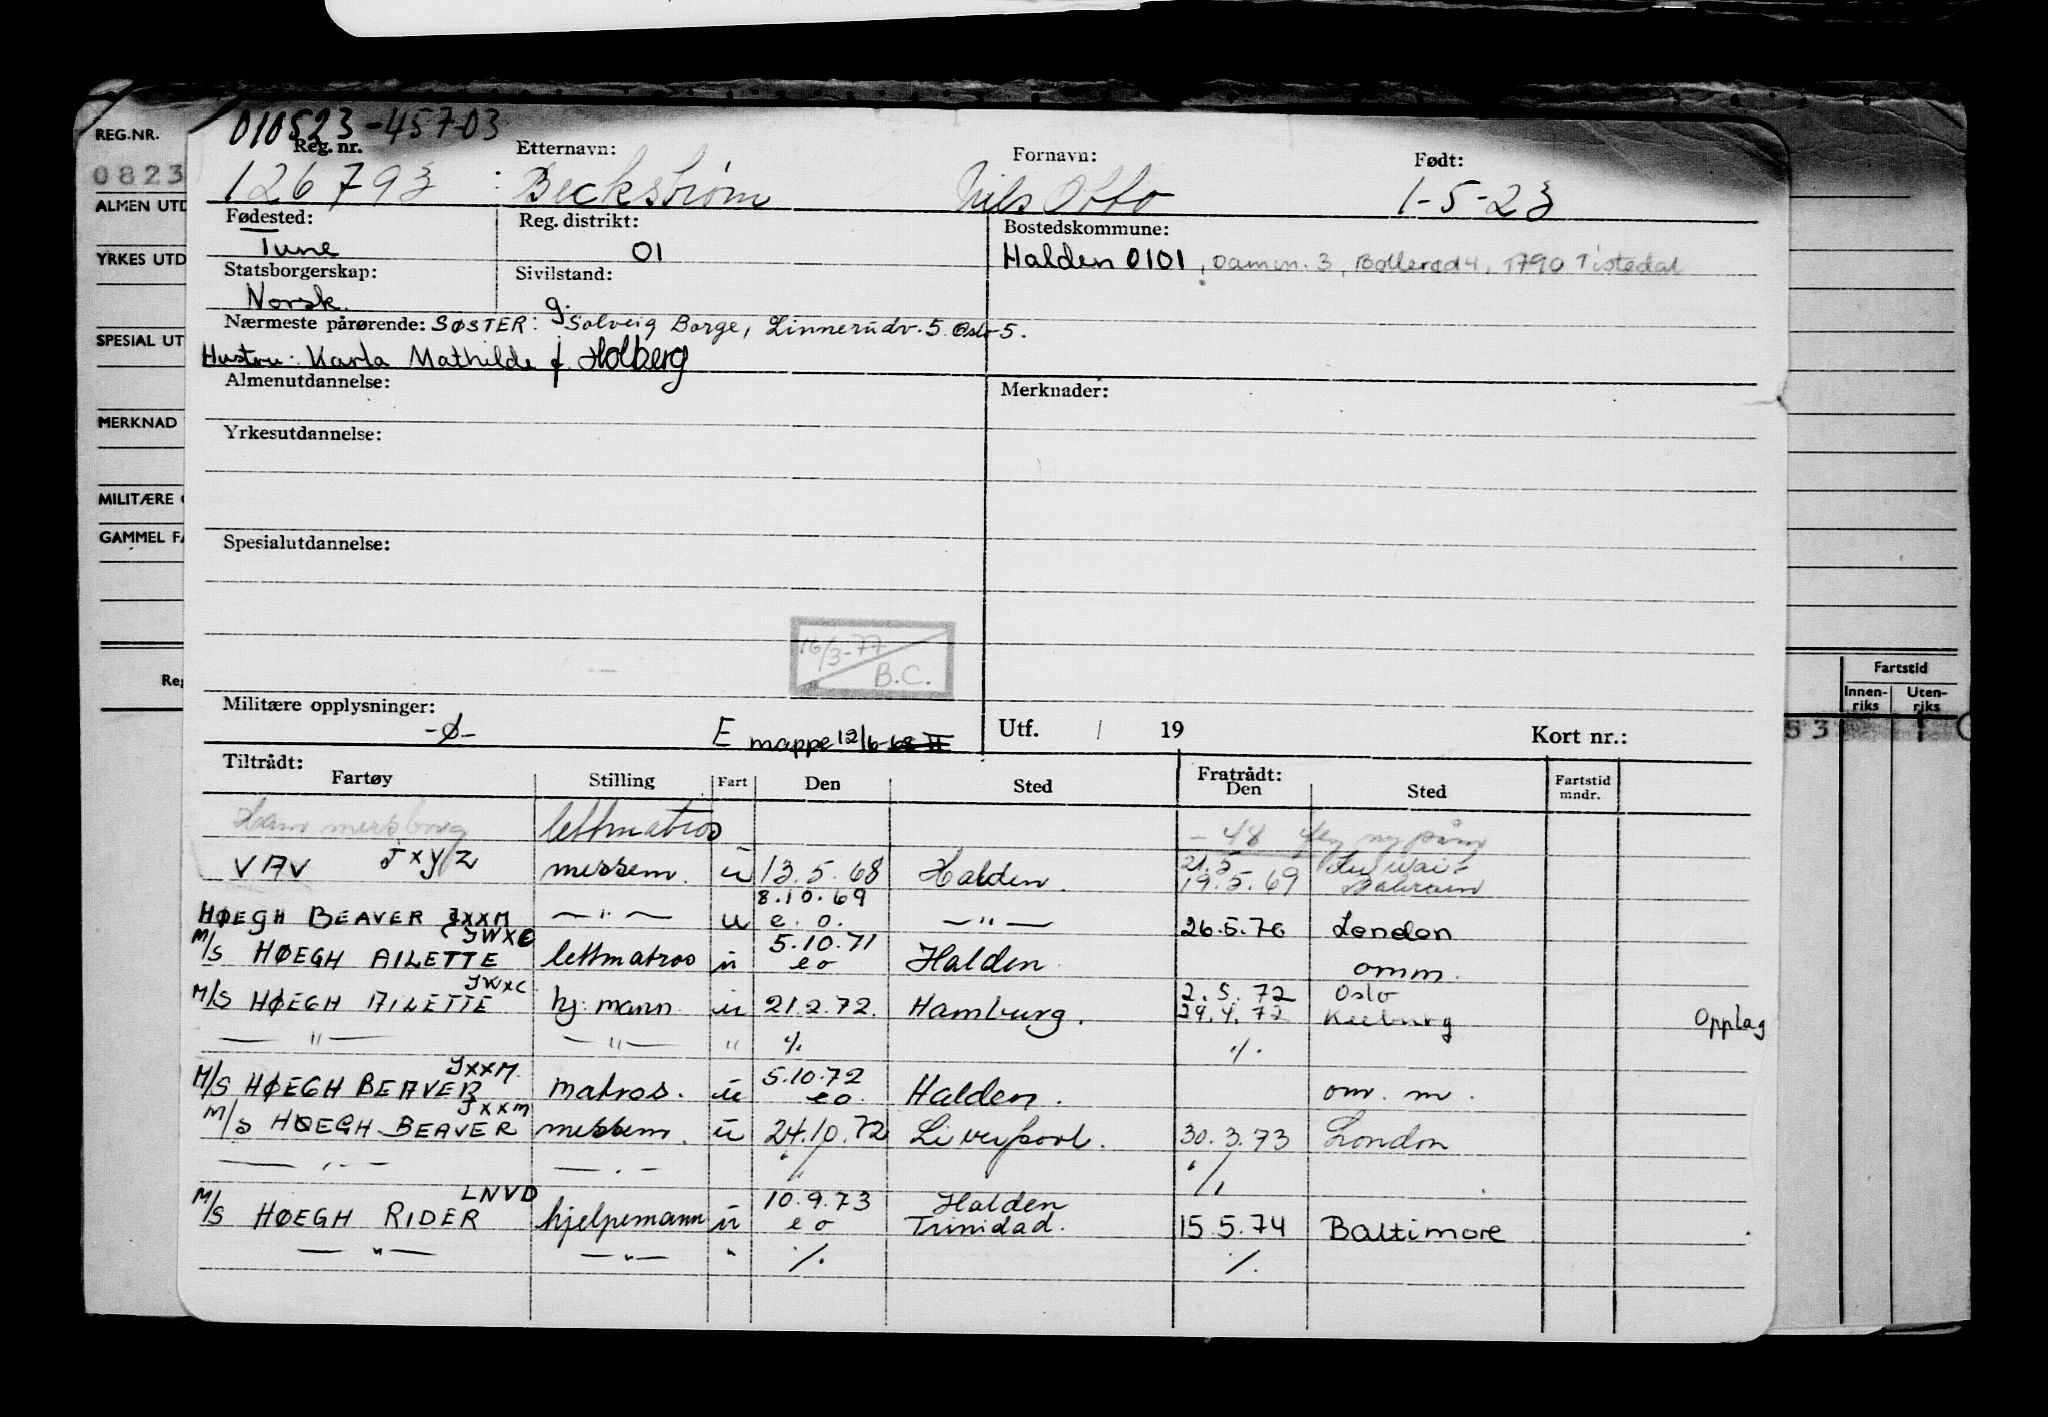 010523-457-03
REG.NR. Reg. nr. Etternavn: Fornavn: Født:
0823 126793 : Beckstrøm Nils Otto 1-5-23
ALMEN UTD Fødested: Reg. distrikt: Bostedskommune:
Tune 01 Halden 0101, 1790 Tistedal
YRKES UTD Statsborgerskap: Sivilstand:
Norsk. g.
Nærmeste pårørende: SØSTER: Solveig Borge, Linnerudv. 5. Oslo 5.
SPESIAL UT
Hustru: Karla Mathilde f. Holberg
Almenutdannelse: Merknader:
MERKNAD Yrkesutdannelse:
MILITÆRE
GAMMEL FA Spesialutdannelse:
16/3-77
B.C.
Fartstid
Reg Innen- Uten-
riks riks
Militære opplysninger: 53
-Ø- E mappe 12/6-68 II Utf. / 19 Kort nr.:
Tiltrådt: Fratrådt:
Fartøy Stilling Fart Den Sted Den Sted Fartstid mndr.
lettmatros - 48
21.5
VAV JXYZ messem. u 13.5.68 Halden. 19.5.69 Bahrain
8.10.69
HØEGH BEAVER JXXM —"— u e.o. —"— 26.5.70 London
JWXC 5.10.71
M/S HØEGH AILETTE lettmatros u e o Halden omm.
JWXC 2.5.72 Oslo
M/S HØEGH AILETTE hj. mann u 21.2.72. Hamburg. 29.4.72 Opplag
—"— —"— " ./. ./.
JXXM. 5.10.72
M/S HØEGH BEAVER matros. u eo. Halden. om. m.
JXXM
M/S HØEGH BEAVER messem. u 24.10.72 Liverpool. 30.3.73 London
—"— —"— ./. ./.
LNVD 10.9.73 Halden
M/S HØEGH RIDER hjelpemann u e o Trinidad. 15.5.74 Baltimore
—"— —"— " ./. ./.